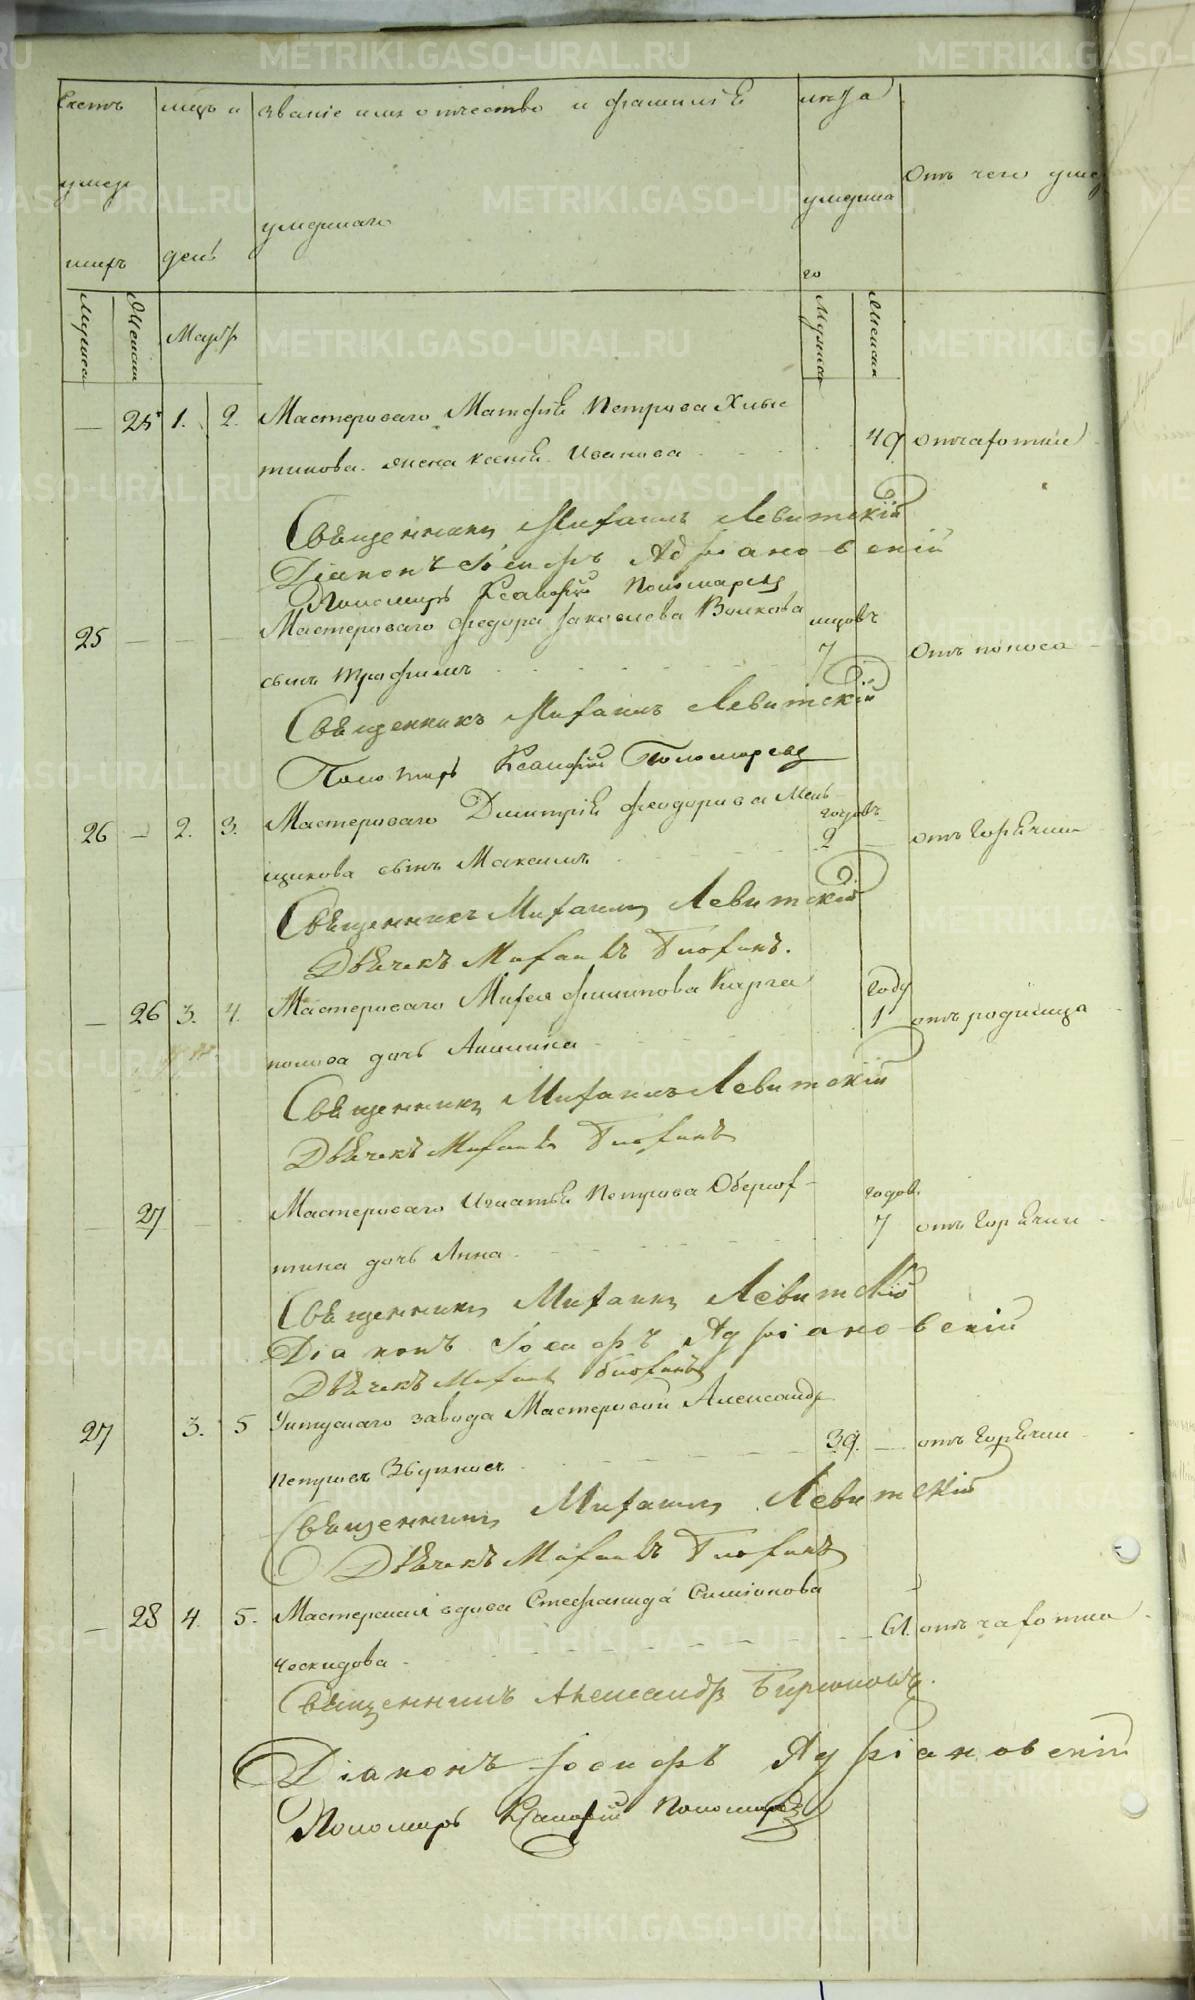 Счетъ
умер
шихъ
мцъ и
день
званіе имя отчество и фамиліи
умершаго
лѣта
умерша
го
Отъ чего умер
Мужеска
Женска
Март
Мужеска
Женска
— 25 1. 2. Мастероваго Матфѣя Петрова Хлыс
тикова жена Ксенія Иванова 49 отчахотки
Священникъ Михаилъ Левитскій
Діаконъ Іосифъ Адріановскій
Пономарь Ксанфій Пономаревъ
25 Мастероваго Федора Яковлева Волкова мцовъ
сынъ Трофимъ 7 Отъ поноса
Священникъ Михаилъ Левитскій
Пономарь Ксанфій Пономаревъ
26 — 2. 3. Мастероваго Димитрія Феодорова Мень
щикова сынъ Максимъ годовъ 9 — отъ Горячки
Священникъ Михаилъ Левитскій
Дьячекъ Михаилъ
— 26 3. 4. Мастероваго Филипова Карга
полова дочь году 1 отъ родимца
Священникъ Михаилъ Левитскій
Дьячекъ Михаилъ
— 27 Мастероваго Игнатія Петрова Оберюх
тина дочь Анна годов. 7 отъ Горячки
Священникъ Михаилъ Левитскій
Діаконъ Іосифъ Адріановскій
Дьячекъ Михаилъ
27 3. 5 Уктускаго завода Мастеровой Александр
39. — отъ Горячки
Священникъ Михаилъ Левитскій
Дьячекъ Михаилъ
— 28 4. 5. Мастерская вдова Стефанида Симіонова
Ческидова 61. отъ чахотки
Священникъ Александръ Бирюковъ.
Діаконъ Іосифъ Адріановскій
Пономарь Ксанфій Пономаревъ
METRIKI.GASO-URAL.RU